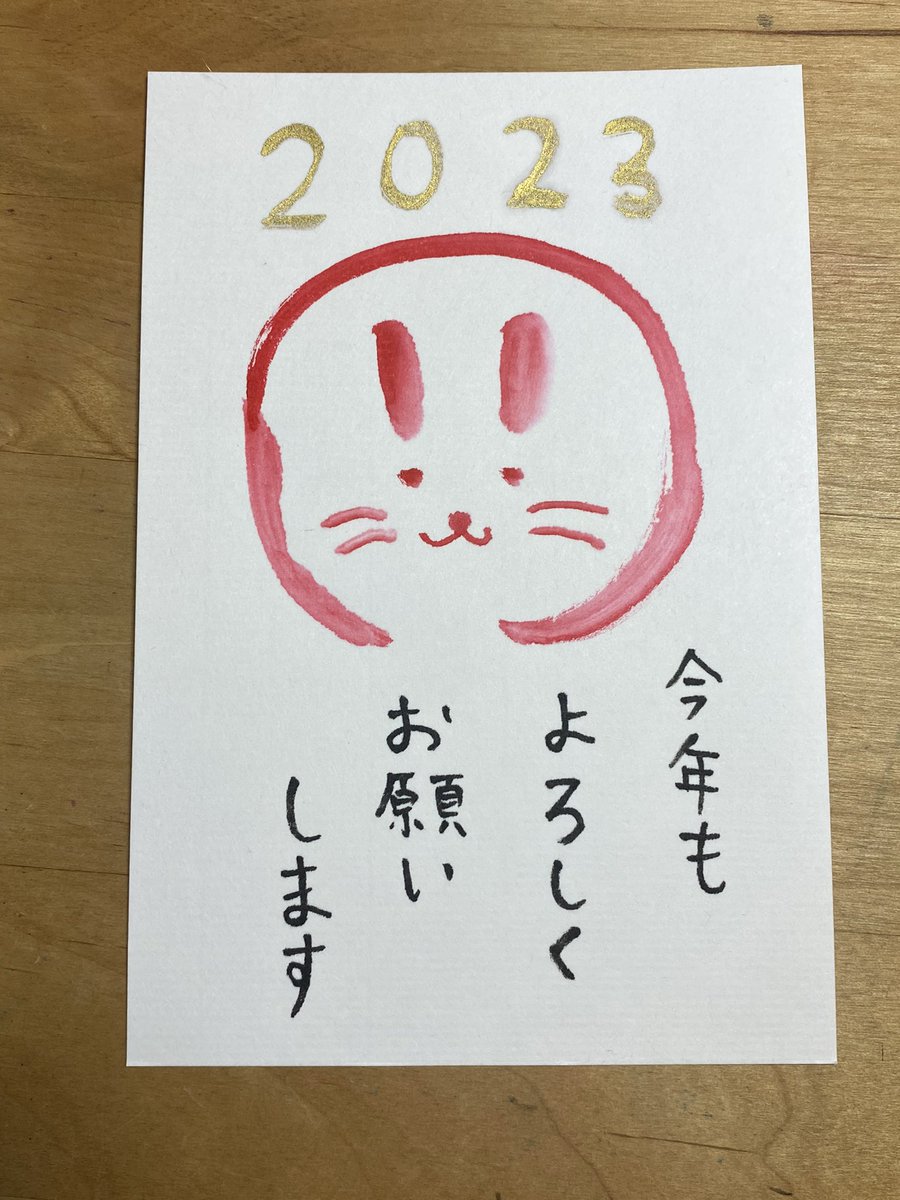 2023
今年も
よろしく
お願い
します